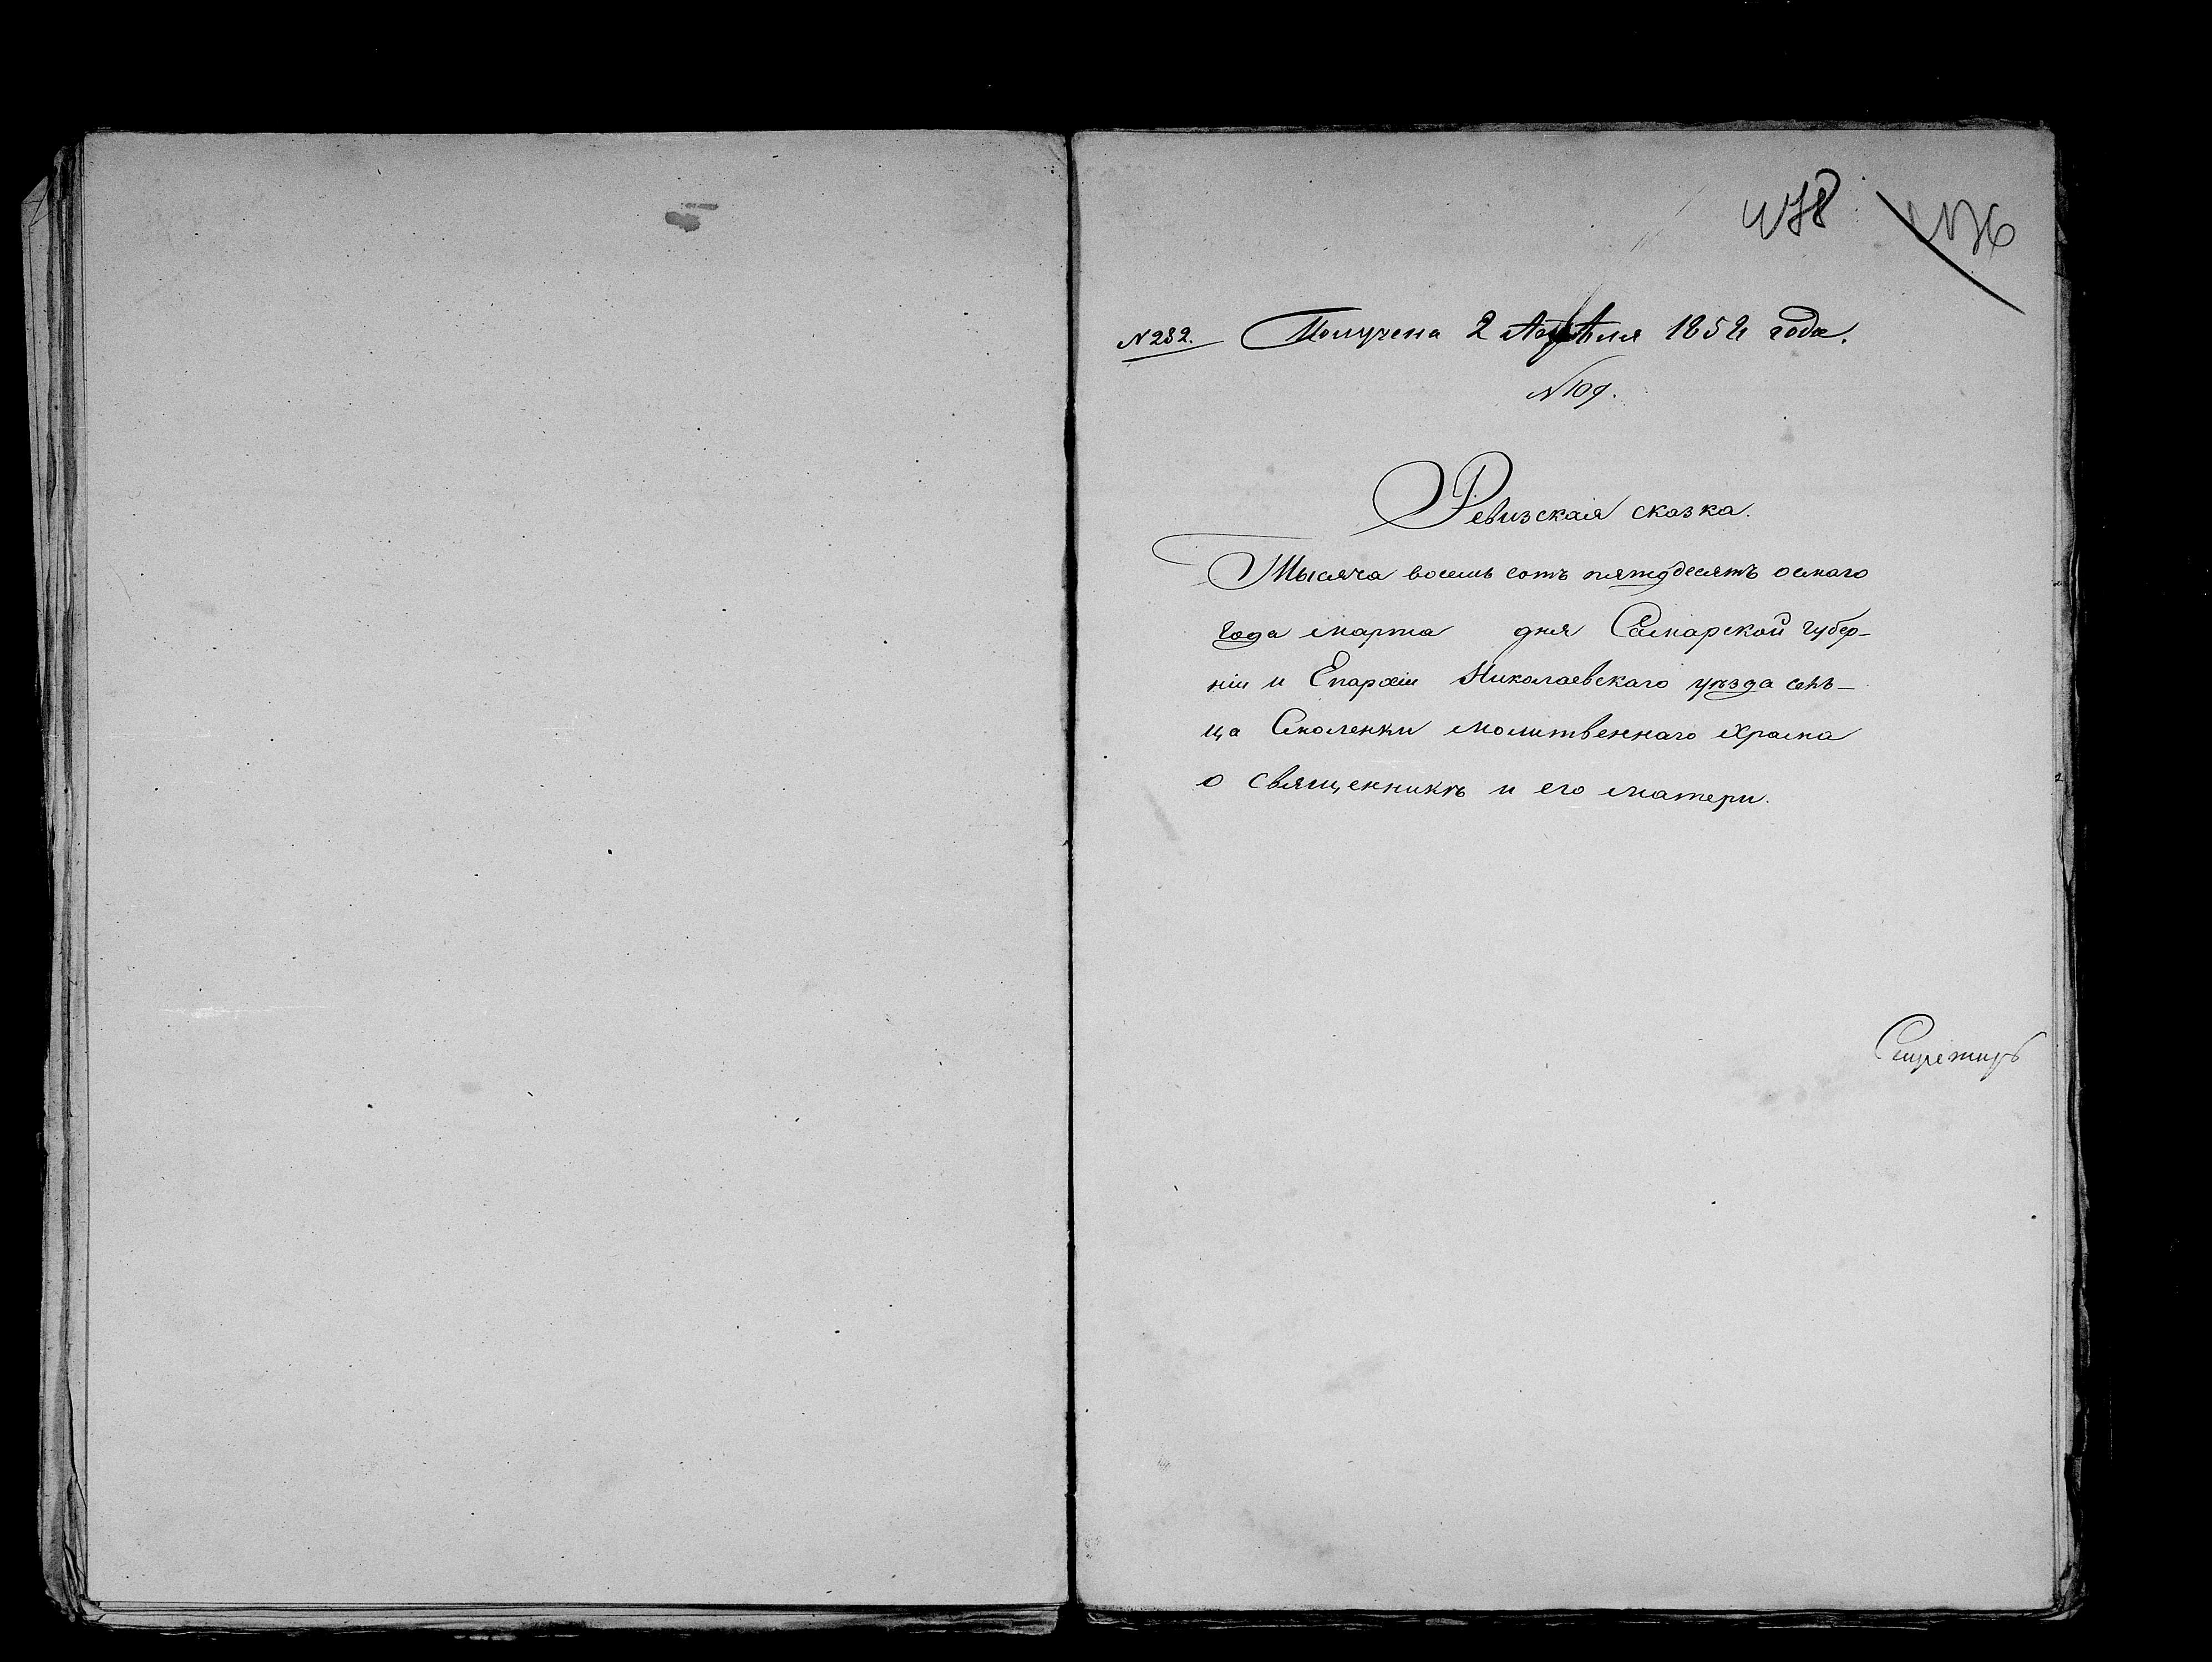 478
N 282. Получена 2 Апрѣля 1858 года.
N 109.
Ревизская сказка.
Тысяча восемь сотъ пятдесятъ осмаго
года марта дня Самарской губер-
ніи и Епархіи Николаевскаго уѣзда сель-
ца Смоленки молитвеннаго храма
о священникѣ и его матери.
Секретарь